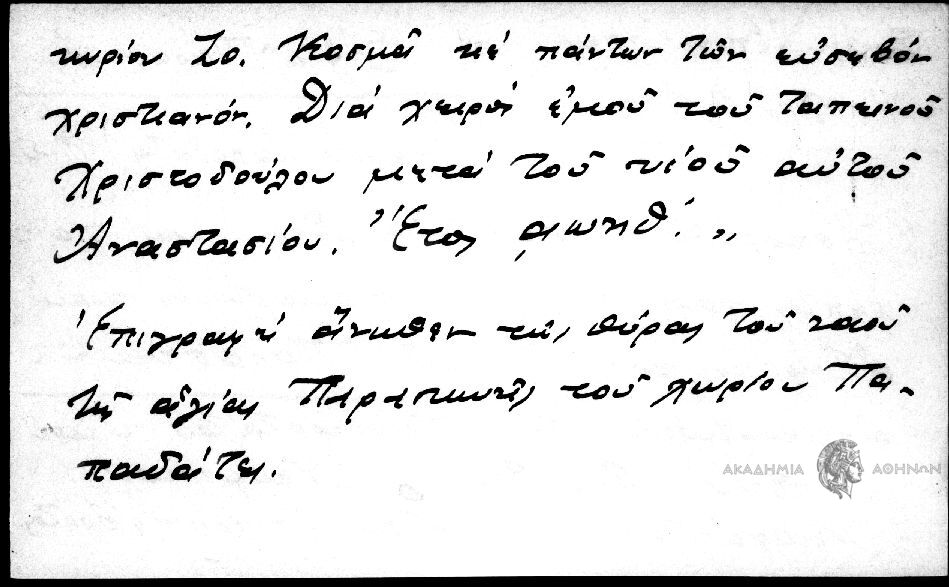 κυρίου Ζο. Κοσμᾶ κέ πάντων τῶν εὐσεβόν
χριστιανόν. Διά χειρός ἐμοῦ τοῦ ταπεινοῦ
Χριστοδούλου μετά τοῦ υἱοῦ αὐτοῦ
Ἀναστασίου. Ἔτος αωκθ΄. „
Ἐπιγραφή ἄνωθεν τῆς θύρας τοῦ ναοῦ
τῆς ἁγίας Παρασκευῆς τοῦ χωρίου Πα-
παδάτες.
ΑΚΑΔΗΜΙΑ ΑΘΗΝΩΝ